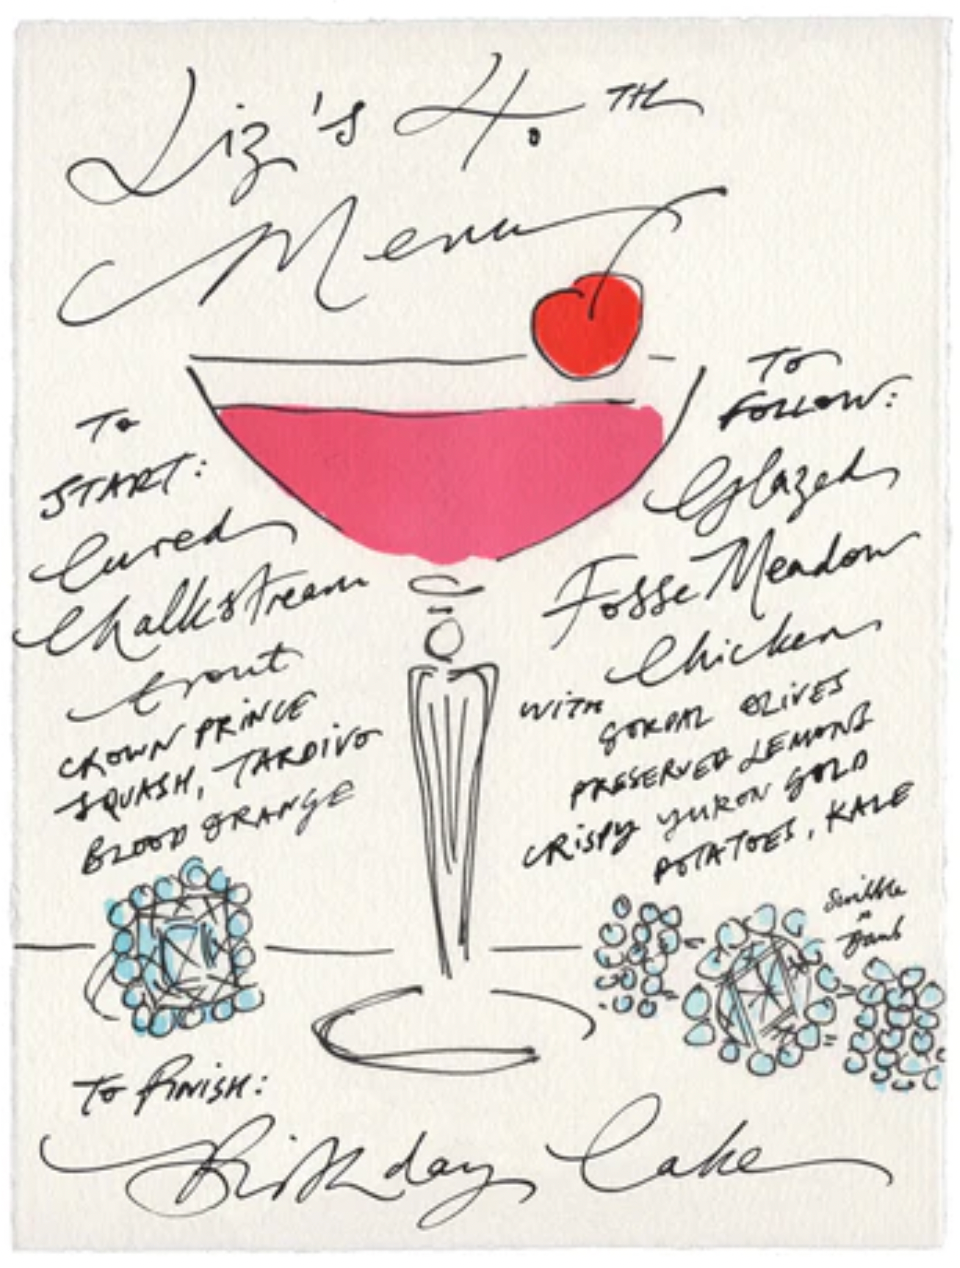 Liz's 40TH
Menu
TO
START:
Cured
Chalkstream
trout
CROWN PRINCE
SQUASH, TARDIVO
BLOOD ORANGE
TO
FOLLOW:
Glazed
Fosse Meadow
Chicken
WITH GORDAL OLIVES
PRESERVED LEMONS
CRISPY YUKON GOLD
POTATOES, KALE
Scribble
Bomb
TO FINISH:
Birthday Cake